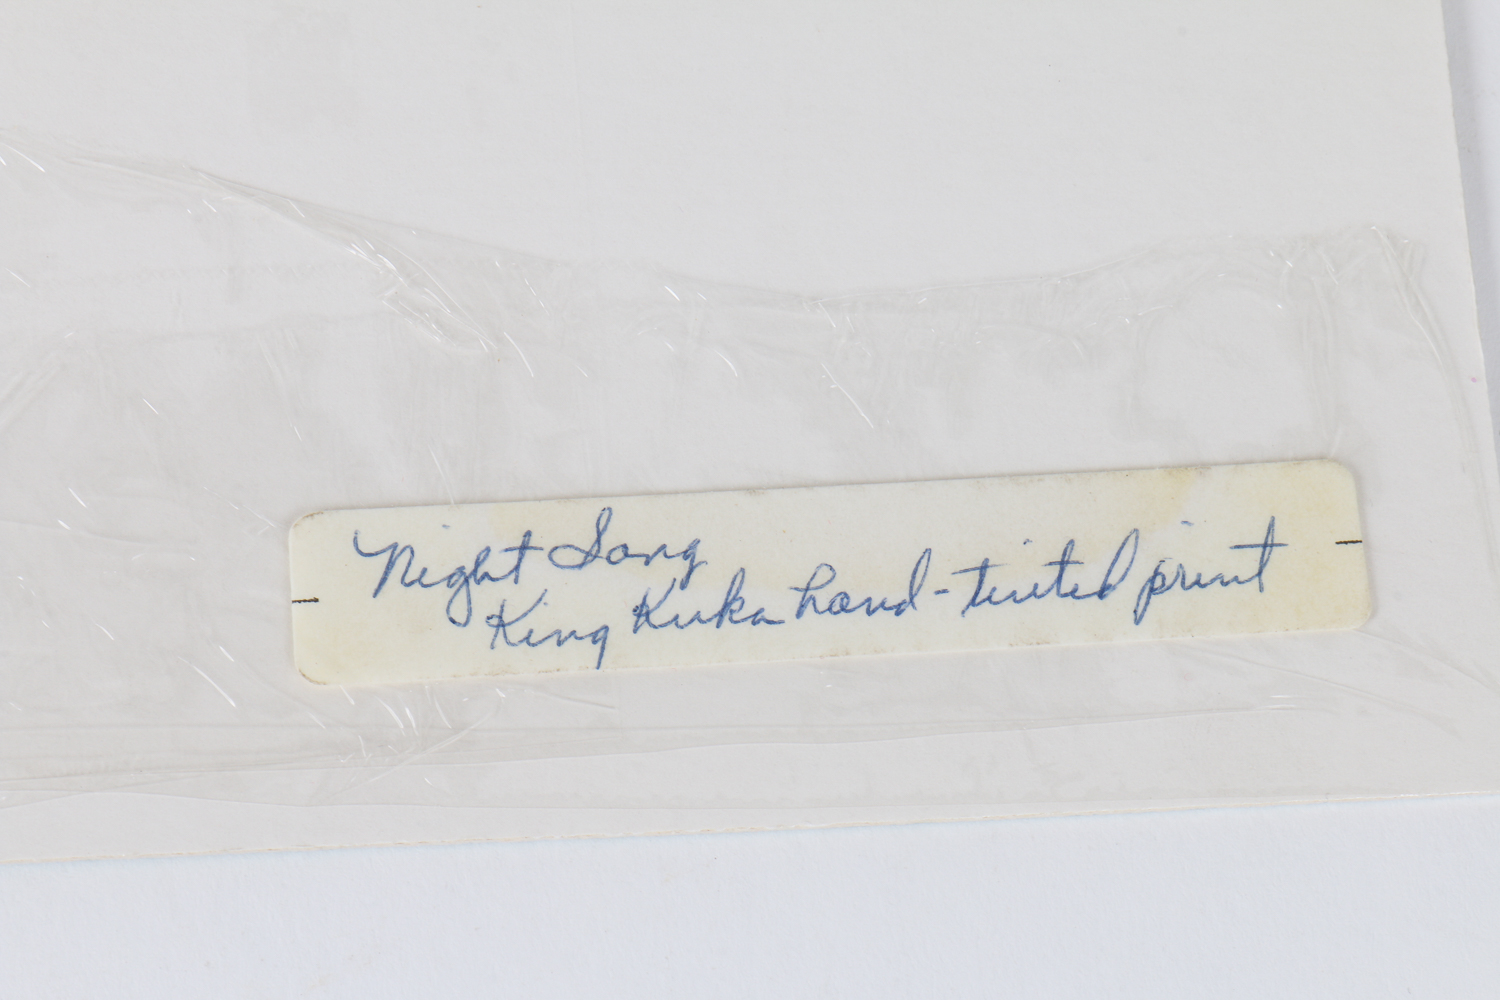 Night Song
King Kuka hand-tinted print